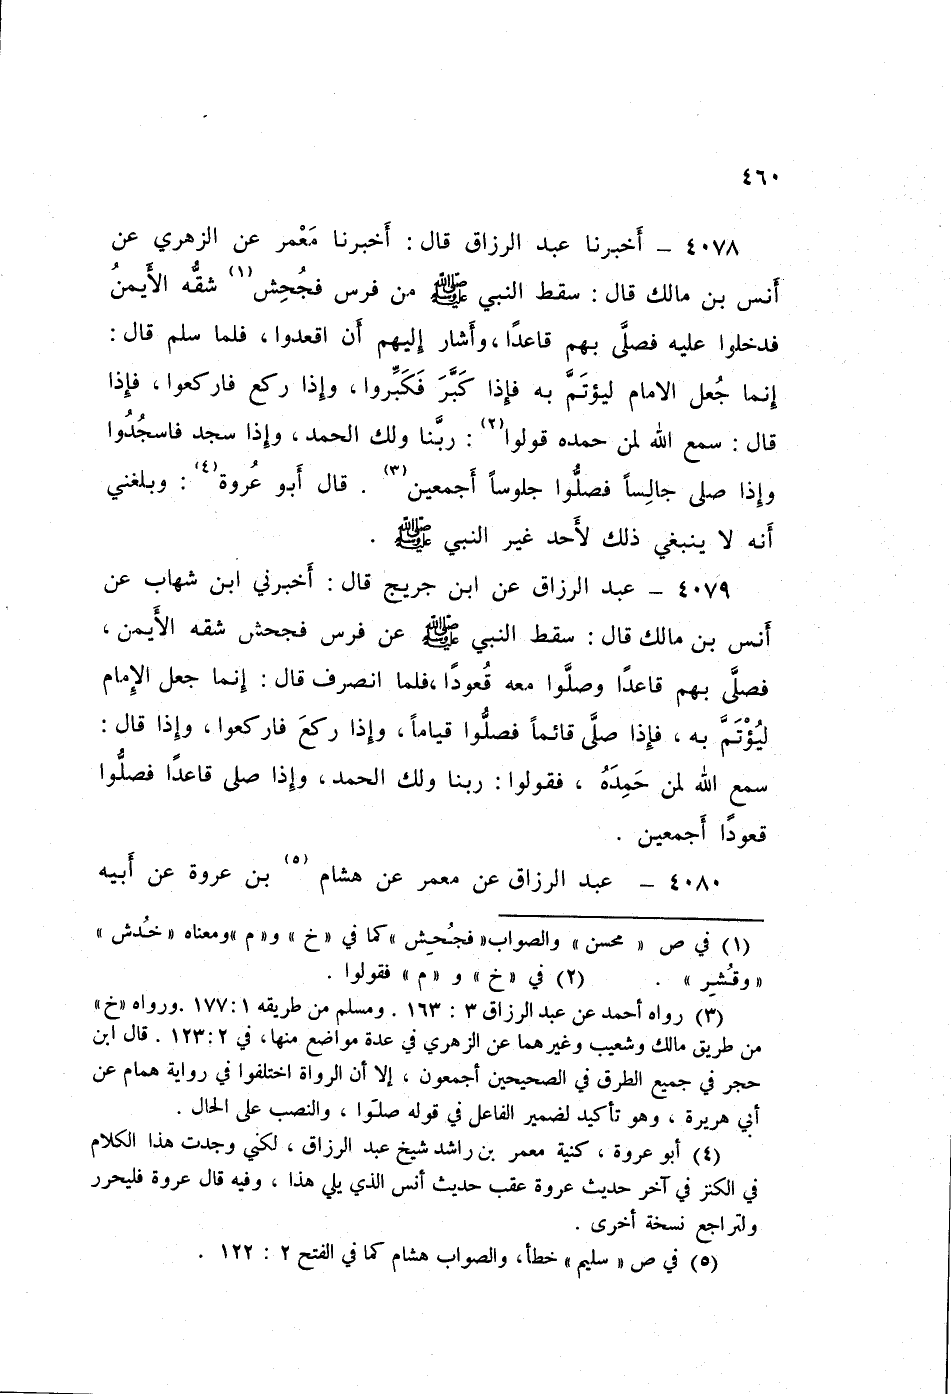 ٤٦٠
٤٠٧٨ – أَخبرنا عبد الرزاق قال : أَخبرنا مَعْمر عن الزهري عن
أَنس بن مالك قال : سقط النبي ﷺ من فرس فجُحِش(١) شقُّه الأَيمنُ
فدخلوا عليه فصلَّى بهم قاعدًا ، وأَشار إِليهم أَن اقعدوا ، فلما سلم قال :
إِنما جُعل الامام ليؤتَمَّ به فإِذا كَبَّرَ فَكَبِّروا ، وإِذا ركع فاركعوا ، فإِذا
قال : سمع الله لمن حمده قولوا(٢) : ربَّنا ولك الحمد ، وإِذا سجد فاسجُدُوا
وإِذا صلى جالِساً فصلُّوا جلوساً أَجمعين(٣) . قال أَبو عُروة(٤) : وبلغني
أَنه لا ينبغي ذلك لأَحد غير النبي ﷺ .
٤٠٧٩ – عبد الرزاق عن ابن جريج قال : أَخبرني ابن شهاب عن
أَنس بن مالك قال : سقط النبي ﷺ عن فرس فجحش شقه الأَيمن ،
فصلَّى بهم قاعدًا وصلَّوا معه قُعودًا ، فلما انصرف قال : إِنما جعل الإِمام
ليُؤْتَمَّ به ، فإِذا صلَّى قائماً فصلُّوا قياماً ، وإِذا ركعَ فاركعوا ، وإِذا قال :
سمع الله لمن حَمِدَهُ ، فقولوا : ربنا ولك الحمد ، وإِذا صلى قاعدًا فصلُّوا
قعودًا أَجمعين .
٤٠٨٠ – عبد الرزاق عن معمر عن هشام (٥) بن عروة عن أَبيه
(١) في ص « محسن » والصواب « فجُحِش » كما في « خ » و« م » ومعناه « خُدش »
« وقُشِر » . (٢) في « خ » و « م » فقولوا .
(٣) رواه أحمد عن عبد الرزاق ٣ : ١٦٣ . ومسلم من طريقه ١ : ١٧٧ . ورواه « خ »
من طريق مالك وشعيب وغيرهما عن الزهري في عدة مواضع منها ، في ٢ : ١٢٣ . قال ابن
حجر في جميع الطرق في الصحيحين أجمعون ، إلا أن الرواة اختلفوا في رواية همام عن
أبي هريرة ، وهو تأكيد لضمير الفاعل في قوله صلّوا ، والنصب على الحال .
(٤) أبو عروة ، كنية معمر بن راشد شيخ عبد الرزاق ، لكني وجدت هذا الكلام
في الكنز في آخر حديث عروة عقب حديث أنس الذي يلي هذا ، وفيه قال عروة فليحرر
ولتراجع نسخة أخرى .
(٥) في ص « سليم » خطأ ، والصواب هشام كما في الفتح ٢ : ١٢٢ .